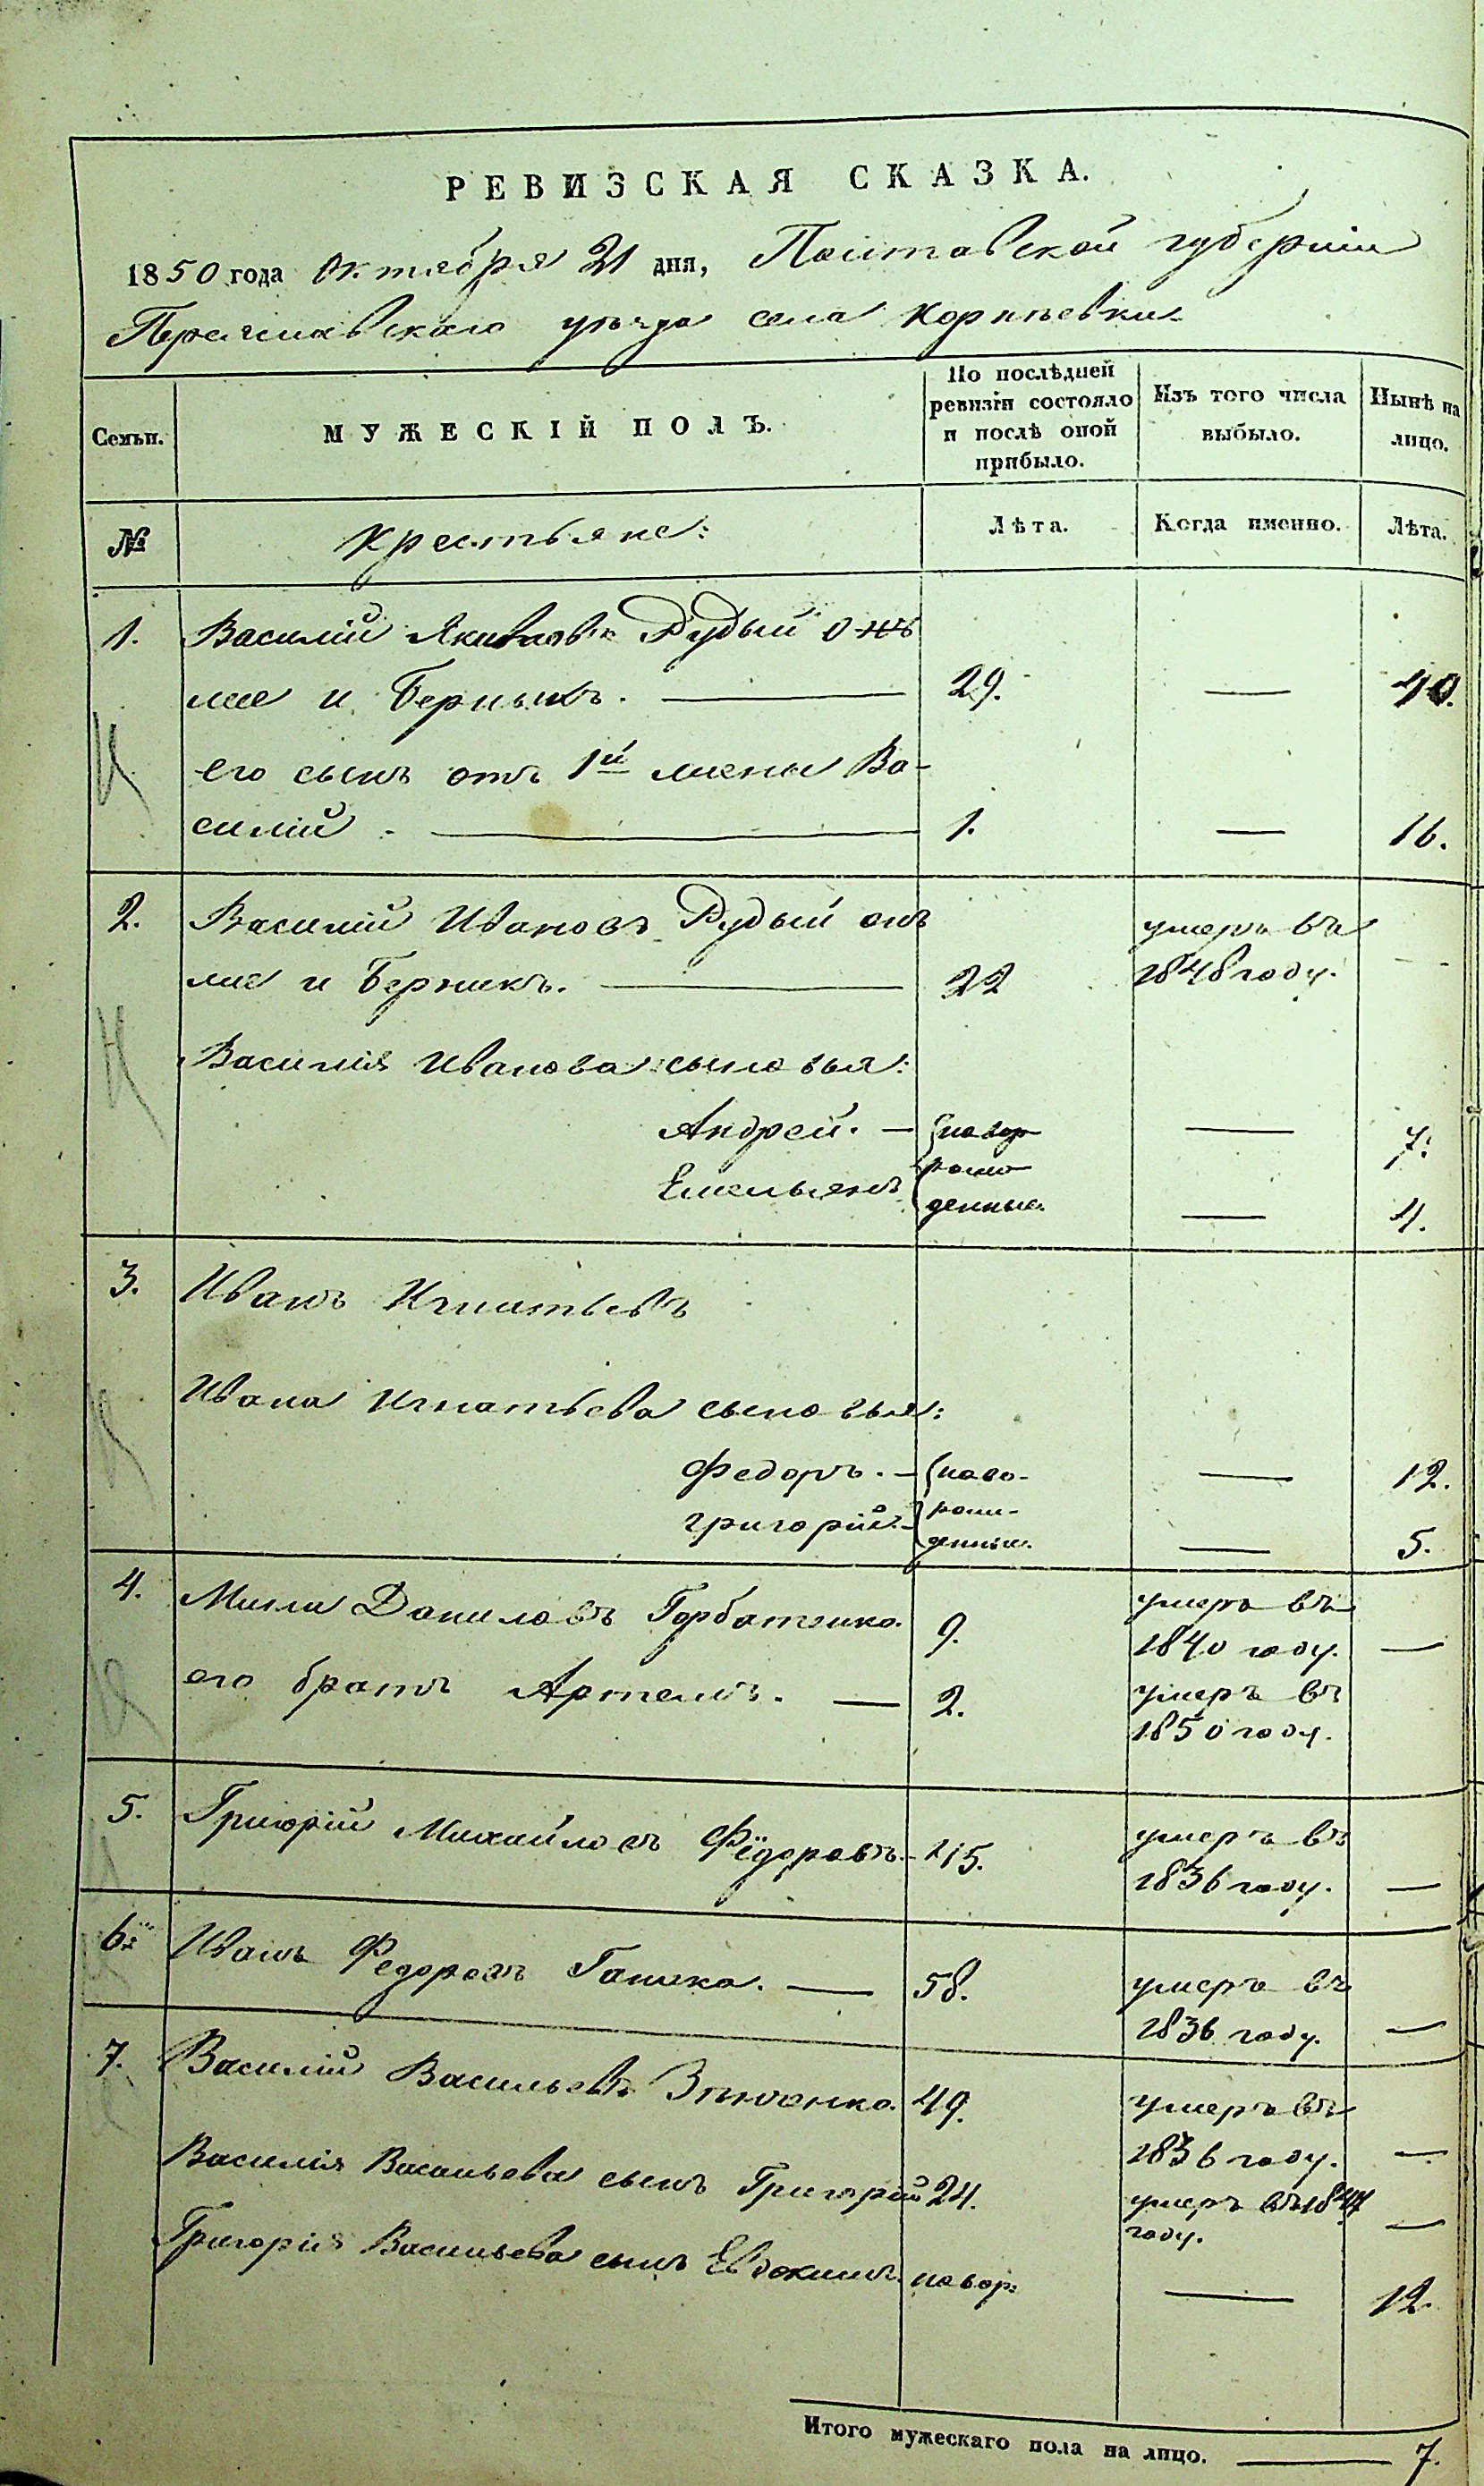 РЕВИЗСКАЯ СКАЗКА.
1850 года Октября 21 дня, Полтавской губернии
Переяславскаго уѣзда села Корнѣевки
Семьи.
МУЖЕСКІЙ ПОЛЪ.
По послѣдней
ревизіи состояло
и послѣ оной
прибыло.
Изъ того числа
выбыло.
Нынѣ на
лицо.
№
Крестьяне:
Лѣта.
Когда именно.
Лѣта.
1. Василій Рудый онъ
же и Берникъ. — 29. — 40.
его сынъ отъ 1й жены Ва-
силій — 1. — 16.
2. Василій Ивановъ Рудый онъ умеръ въ
же и Берникъ. — 22 1848 году.
Василія Иванова сыновья:
Андрей. — новор — 7.
Емельянъ рож
денные. — 4.
3. Иванъ Игнатьевъ
Ивана Игнатьева сыновья:
Федоръ. — ново- — 12.
Григорій. — рож-
денные. — 5.
4. Даниловъ Горбатенко. 9. умеръ въ
1840 году. —
его братъ Артемъ. — 2. умеръ въ
1850 году.
5. Григорій Михайловъ Фёдоровъ. 15. умеръ въ
1836 году. —
6. Иванъ Федоровъ Ганжа. — 58. умеръ въ
1836 году. —
7. Василій Васильевъ 49. умеръ въ
1836 году. —
Василія Васильева сынъ Григорій 24. умеръ въ 1847
году. —
Григорія Васильева сынъ Евдокимъ. новор: — 12.
Итого мужескаго пола на лицо. — 7.